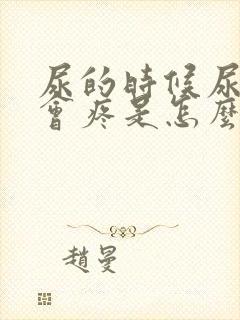 尿的時候尿
會疼是怎麼
趙曼